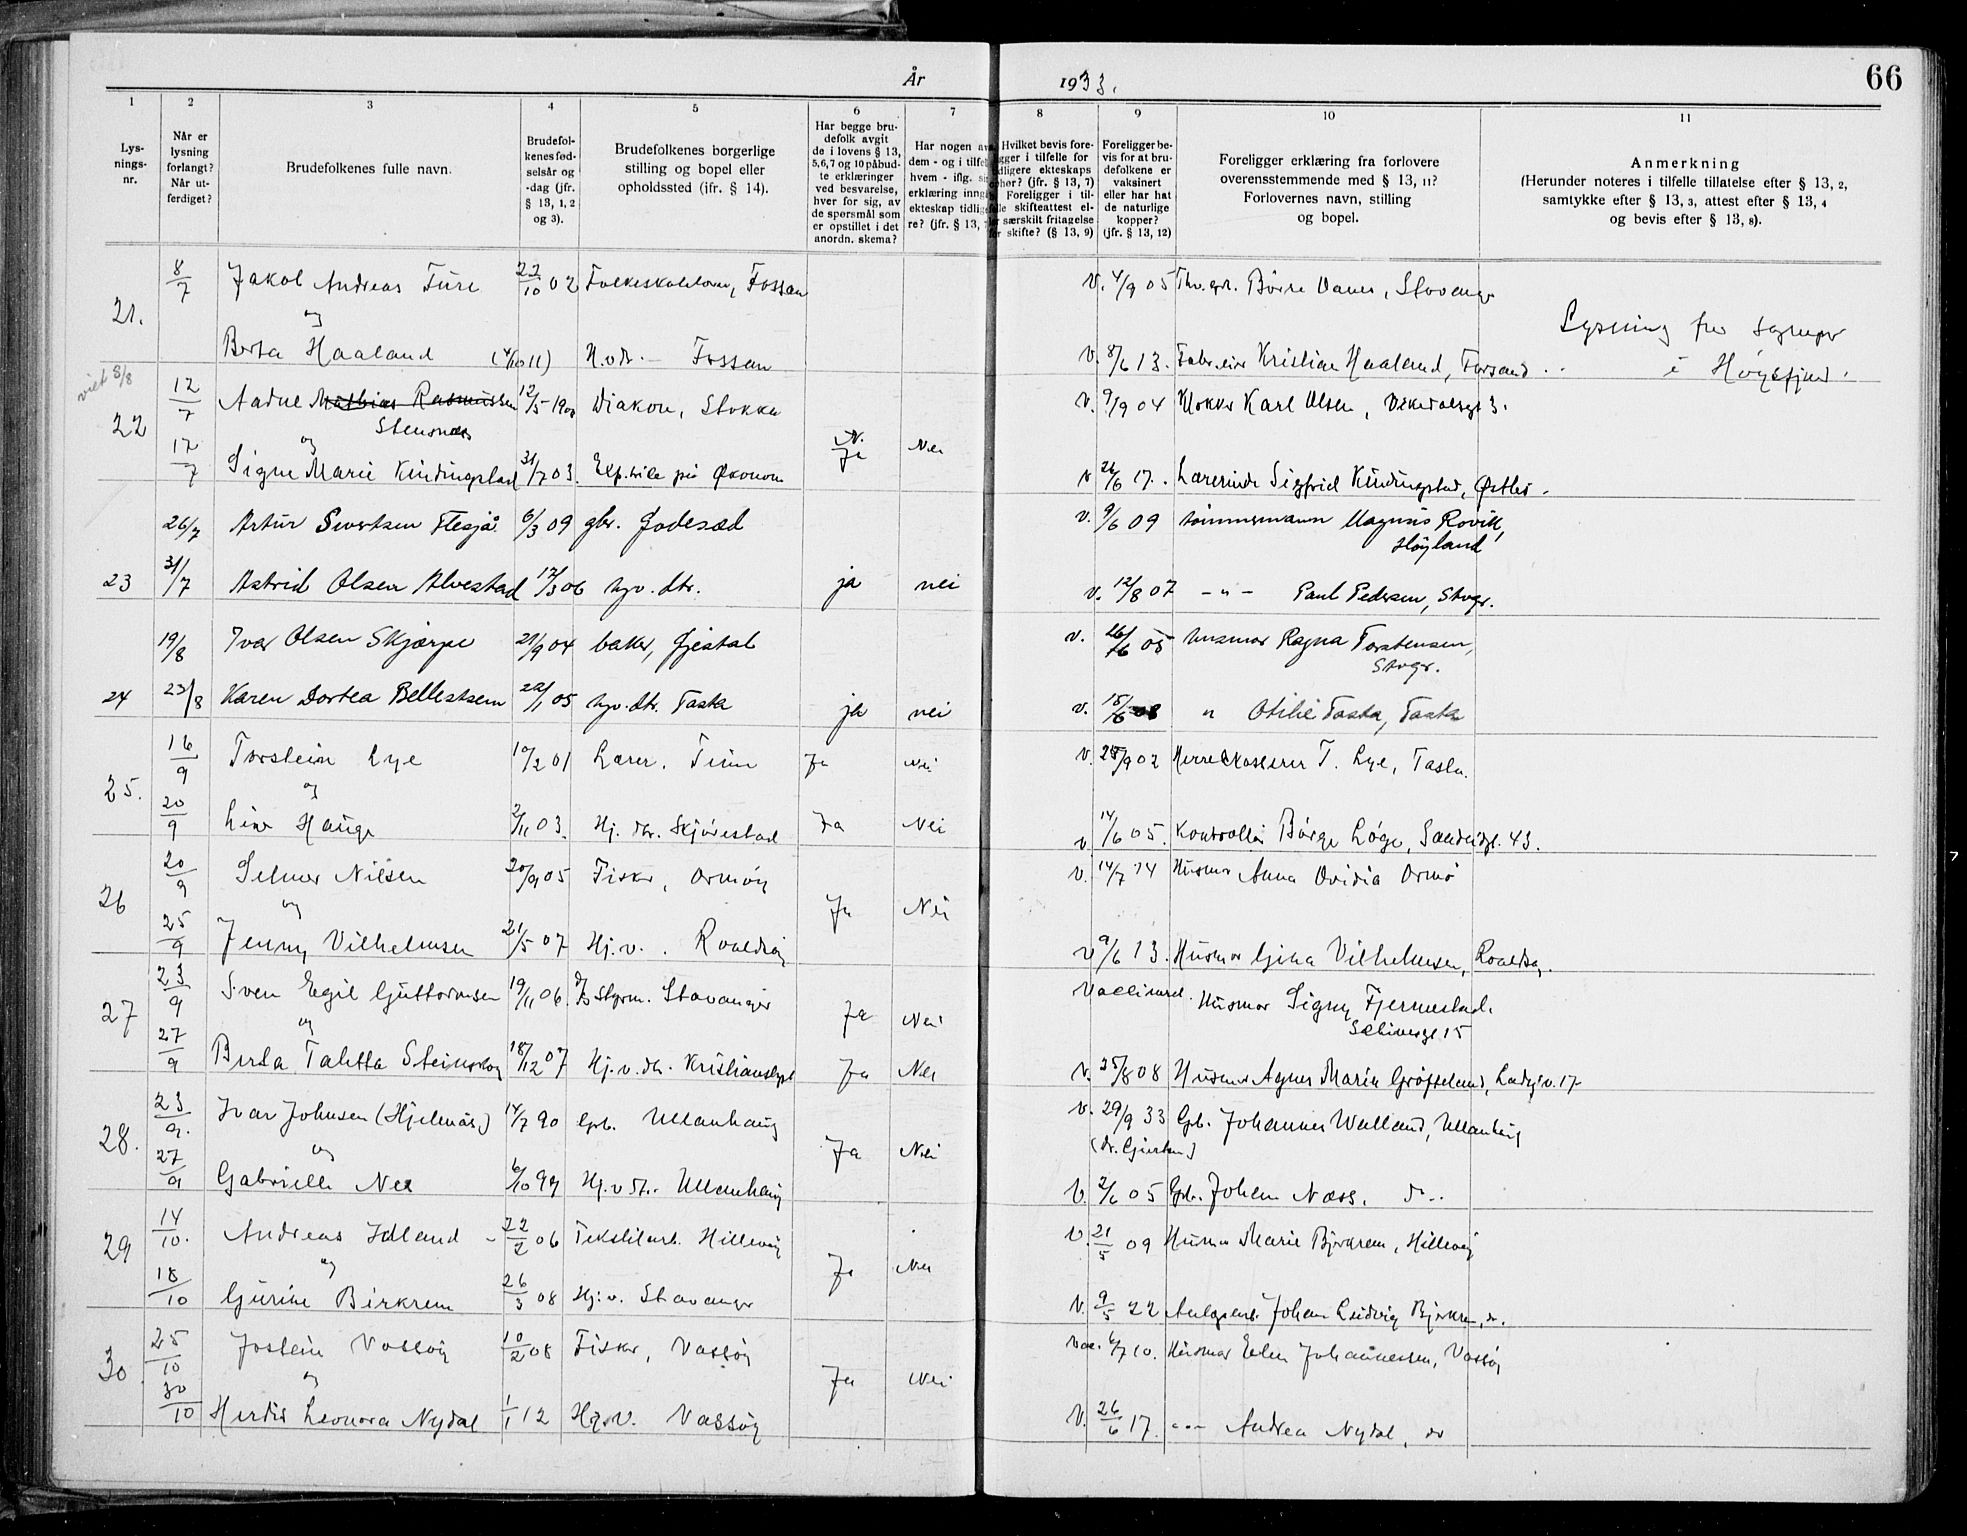 År 1933. 66
1 2 3 4 5 6 7 8 9 10 11
Lys-
nings-
nr.
Når er
lysning
forlangt?
Når ut-
ferdiget?
Brudefolkenes fulle navn.
Brudefol-
kenes fød-
selsår og
-dag (jfr.
§ 13, 1, 2
og 3).
Brudefolkenes borgerlige
stilling og bopel eller
opholdssted (ifr. § 14).
Har begge bru-
defolk avgit
de i lovens § 13,
5, 6, 7 og 10 påbud-
te erklæringer
ved besvarelse,
hver for sig, av
de spørsmål som
er opstillet i det
anordn. skema?
Har nogen av
dem - og i tilfel
hvem - iflg. si
erklæring inng
ekteskap tidlig
re? (jfr. § 13,
Hvilket bevis fore-
gger i tilfelle for
dligere ekteskaps
phør? (jfr. § 13, 7)
Foreligger i til-
lle skifteattest el-
r særskilt fritagelse
for skifte? (§ 13, 9)
Foreligger be-
vis for at bru-
defolkene er
vaksinert
eller har hat
de naturlige
kopper?
(jfr. § 13, 12)
Foreligger erklæring fra forlovere
overensstemmende med § 13, 11?
Forlovernes navn, stilling
og bopel.
Anmerkning
(Herunder noteres i tilfelle tillatelse efter § 13, 2,
samtykke efter § 13, 3, attest efter § 13, 4
og bevis efter § 13, 8).
21. 8/7 Jakob Andreas 22/10 02 Fossan V. 4/9 05 Stavanger
og
Berta Haaland (4/10 11) Fossan V. 8/6 13. Kristian Haaland, Forsand
Lysning fra
i Høgsfjord.
viet 5/8
22 12/7 Aadne Mathias Rasmussen 12/5-1900 Diakon, Stokka V. 9/9 04 Klokker Karl Olsen, 3.
Stensnæs
og Ja Nei
17/7 Signe Marie Kindingstad 31/7 03. på Økonom V 26/6 17. Lærerinde Sigfrid Kindingstad,
26/7 Artur Sivertsen Flesjå 6/3 09 gbr. Jodesæd V. 9/6 09 tømmermann Magnus Rovik,
Høyland
23 31/7 Astrid Olsen Alvestad 12/3 06 hjv. dtr. ja nei V. 12/8 07 -"- Paul Pedersen, Stvgr.
19/8 Ivar Olsen Skjærpe 21/9 04 baker, Gjestal V. 26/6 05 husmor Ragna Torstensen,
Stvgr.
24 23/8 Karen Dortea Bellestsem 22/1 05 hjv. dtr. Tasta ja nei V. 18/6 08 " Otilie Tasta, Tasta
25. 16/9 Torstein Lye 10/2 01 Lærer. Time Ja Nei V. 25/9 02 Herredskasserer T. Lye, Tasta.
og
20/9 Line Hauge 2/11 03. Hj. dtr. Skjørestad Ja Nei V. 14/6 05. Kontrollør Børge Løge, 43.
26 20/9 Selmer Nilsen 20/9 05 Fisker, Ormøy V. 14/7 14 Husmor Anna Ovidia Ormø
og Ja Nei
25/9 Jenny Vilhelmsen 21/5 07 Hj.v. Roaldsøy V 9/6 13. Husmor Gina Vilhelmsen, Roaldsøy.
27 23/9 Sven Egil Guttormsen 19/11 06. Styrm. Stavanger Ja Nei Husmor Signy Fjermestad.
15
og
27/9 Berta Taletta 18/12 07 Hj.v. dtr. Ja Nei V. 25/8 08 Husmor Agnes Marie 17
28. 23/9. Ivar Johnsen (Hjelmås) 14/7 90 Gbr. Ullanhaug V. 29/9 33 Gbr. Johannes Walland, Ullanhaug
og Ja Nei (dr. Gjertsen)
27/9 Gabrielle 6/10 99 Hj.v dtr. Ullanhaug V. 2/6 05 Gbr. Johan Næss. do.
29 14/10. Andreas Idland 22/2 06 Tekstilarb. Hillevåg V. 21/5 09 Husmor Marie Bjerkrem, Hillevåg
og Ja Nei
18/10 Gurine Birkrem 26/3 08 Hj.v. Stavanger V. 9/5 22 Johan Ludvig Bjerkrem, do.
30. 25/10 Jostein Vassøy 10/2 08 Fisker, Vassøy Vac. 6/7 10. Husmor Johannessen, Vassøy
og Ja Nei
30/10 Herdis Leonora Nydal 1/1 12 Hj.v. Vassøy V. 26/6 17. Andrea Nydal, do